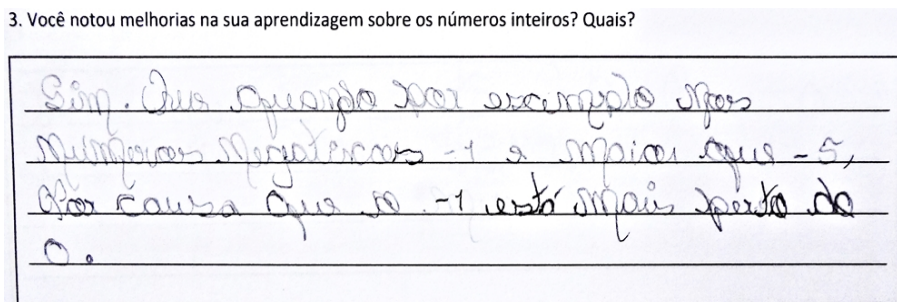 3. Você notou melhorias na sua aprendizagem sobre os números inteiros? Quais?
Sim. Que quando por excimplo nos
números negativos -1 e maior que -5,
Por causa que o -1 está mais perto do
0.